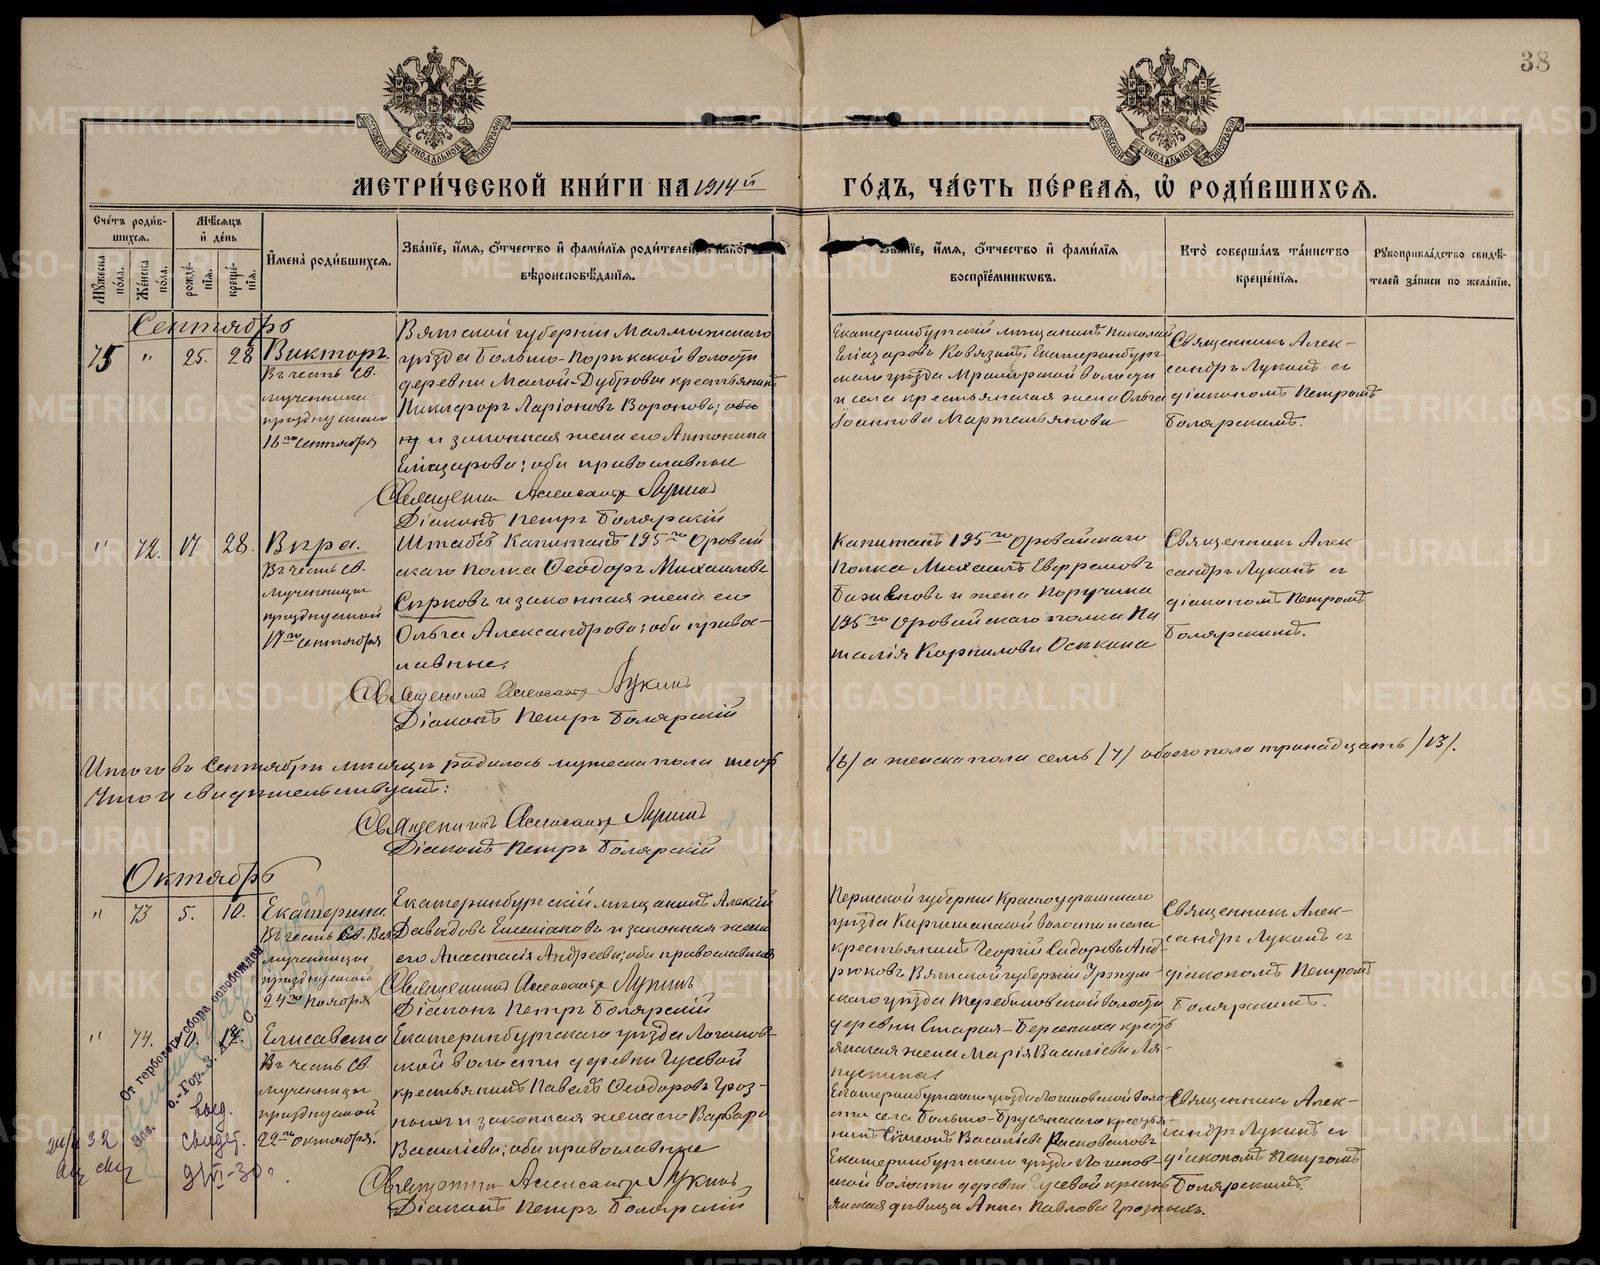 38
МЕТРИ́ЧЕСКОЙ КНИ́ГИ НА 1914й ГО́ДЪ, ЧА́СТЬ ПЕ́РВАЯ, Ѡ РОДИ́ВШИХСЯ.
Сче́тъ роди́вшихся.
Му́жеска по́ла.
Же́нска по́ла.
Мѣ́сяцъ и де́нь
рожде́нїя.
креще́нїя.
Имена̀ роди́вшихся.
Зва́нїе, и́мя, о́тчество и фами́лїя роди́телей,
вѣроисповѣ́данїя.
Зва́нїе, и́мя, о́тчество и фами́лїя
воспрїе́мниковъ.
Кто̀ соверша́лъ та́инство
креще́нїя.
Рукоприкла́дство свидѣ́телей за́писи по жела́нїю.
Сентябрь
75 " 25. 28 Викторъ.
Въ честь Св.
мученика
празднуемаго
16го Сентября
Вятской губернiи Малмыжскаго
уѣзда Больше-Порѣкской волости
деревни Малой-Дубровки крестьянинъ
Никифоръ Ларiоновъ Вороновъ;
и законная жена его Антонина
Елiазарова; оба православные
Священникъ Александръ Лукинъ
Дiаконъ Петръ Боярскiй
Екатеринбургскiй мѣщанинъ Николай
Елiазаровъ Ковязинъ, Екатеринбургскаго уѣзда Мраморской волости
и села крестьянская жена Ольга
Iоаннова Мартемьянова
Священникъ Александръ Лукинъ съ
дiакономъ Петромъ
Боярскимъ.
" 72. 17 28. Вѣра.
Въ честь Св.
мученицы
празднуемой
17го Сентября
Штабсъ Капитанъ 195го Оровайскаго полка Ѳеодоръ Михаиловъ
Сѣрковъ и законная жена его
Ольга Александрова; оба православные.
Священникъ Александръ Лукинъ
Дiаконъ Петръ Боярскiй
Капитанъ 195го Оровайскаго
полка Михаилъ Ефремовъ
Баженовъ и жена Поручика
195го Оровайскаго полка Наталiя Корнилова Оськина
Священникъ Александръ Лукинъ съ
дiакономъ Петромъ
Боярскимъ.
Итого въ Сентябрѣ мѣсяцѣ родилось мужеска пола шесть /6/ а женска пола семь /7/ обоего пола тринадцать /13/.
Что и свидѣтельствуютъ:
Священникъ Александръ Лукинъ
Дiаконъ Петръ Боярскiй
Октябрь
" 73 5. 10. Екатерина.
Въ честь Св. Вел
мученицы
празднуемой
24го Ноября
Екатеринбургскiй мѣщанинъ Алексiй
Давыдовъ Емельяновъ и законная жена
его Анастасiя Андреева; оба православные
Священникъ Александръ Лукинъ
Дiаконъ Петръ Боярскiй
Пермской губернiи Красноуфимскаго
уѣзда Киргишанской волости и села
крестьянинъ Георгiй Сидоровъ Андрюковъ Вятской губернiи
уѣзда Теребиловской волости
деревни Старая-Березниха крестьянская жена Марiя Василiева Ляпустина
Священникъ Александръ Лукинъ съ
дiакономъ Петромъ
Боярскимъ.
" 74. Елисавета
Въ честь Св.
мученицы
празднуемой
22го Октября.
Екатеринбургскаго уѣзда Логиновской волости деревни Гусевой
крестьянинъ Павелъ Ѳеодоровъ Грозныхъ и законная жена его Варвара
Василiева; оба православные
Священникъ Александръ Лукинъ
Дiаконъ Петръ Боярскiй
Екатеринбургскаго уѣзда Логиновской волости села Больше-Брусянскаго крестьянинъ Сѵмеонъ Василiевъ Расковаловъ
Екатеринбургскаго уѣзда Логиновской волости деревни Гусевой крестьянская дѣвица Анна Павлова Грозныхъ.
Священникъ Александръ Лукинъ съ
дiакономъ Петромъ
Боярскимъ.
От гербового сбора освобожден
выд.
свидет.
METRIKI.GASO-URAL.RU